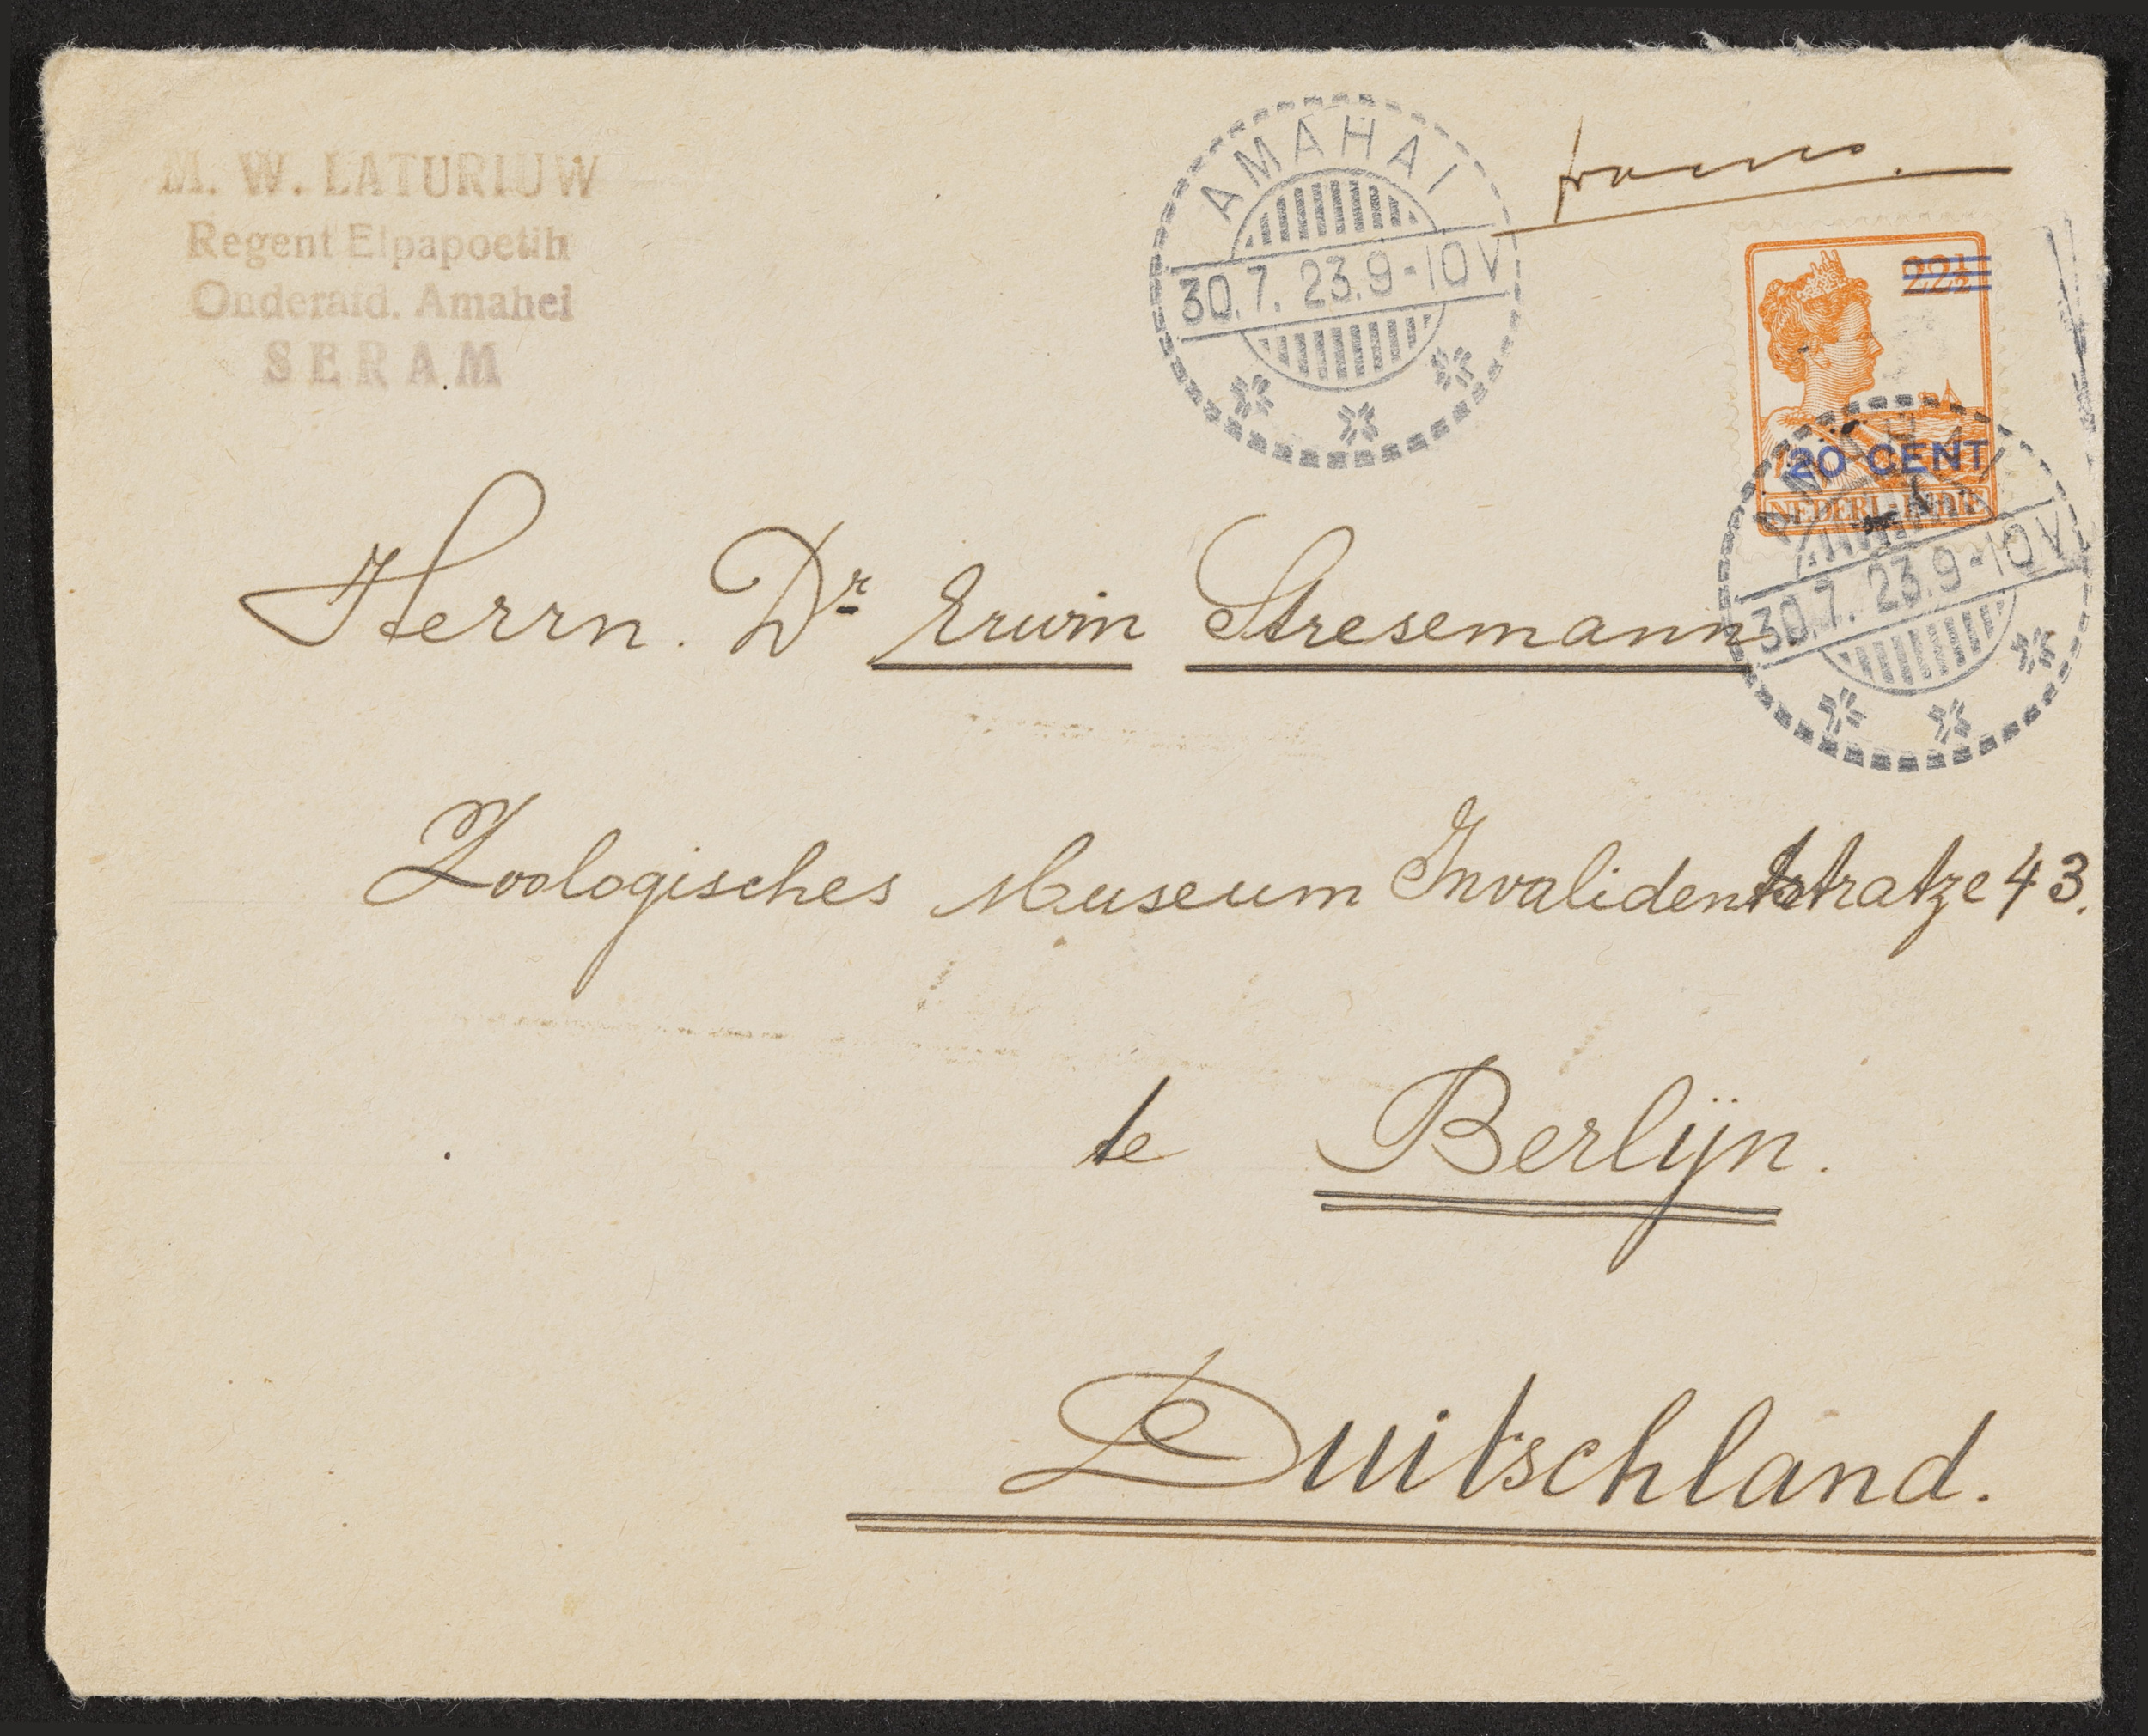 M. W. LATURIUW
Regent Elpapoetih
Onderafd. Amahei
SERAM
AMAHAI
30.7.23.9-10V
franco.
22½
20 CENT
NEDERL-INDIË
30.7.23.9-10V
Herrn. Dr Erwin Stresemann
Zoologisches Museum Invalidenstratze 43.
te Berlijn.
Duitschland.